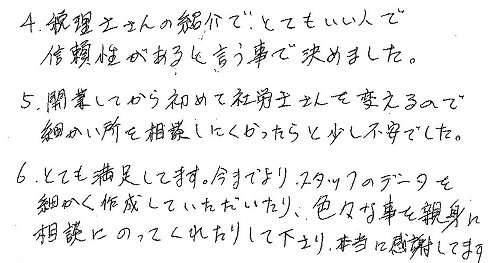 4. 税理士さんの紹介で、とてもいい人で
信頼性があると言う事で決めました。
5. 開業してから初めて社労士さんを変えるので
細かい所を相談しにくかったらと少し不安でした。
6. とても満足してます。今までより、スタッフのデータを
細かく作成していただいたり、色々な事を親身に
相談にのってくれたりして下さり、本当に感謝してます